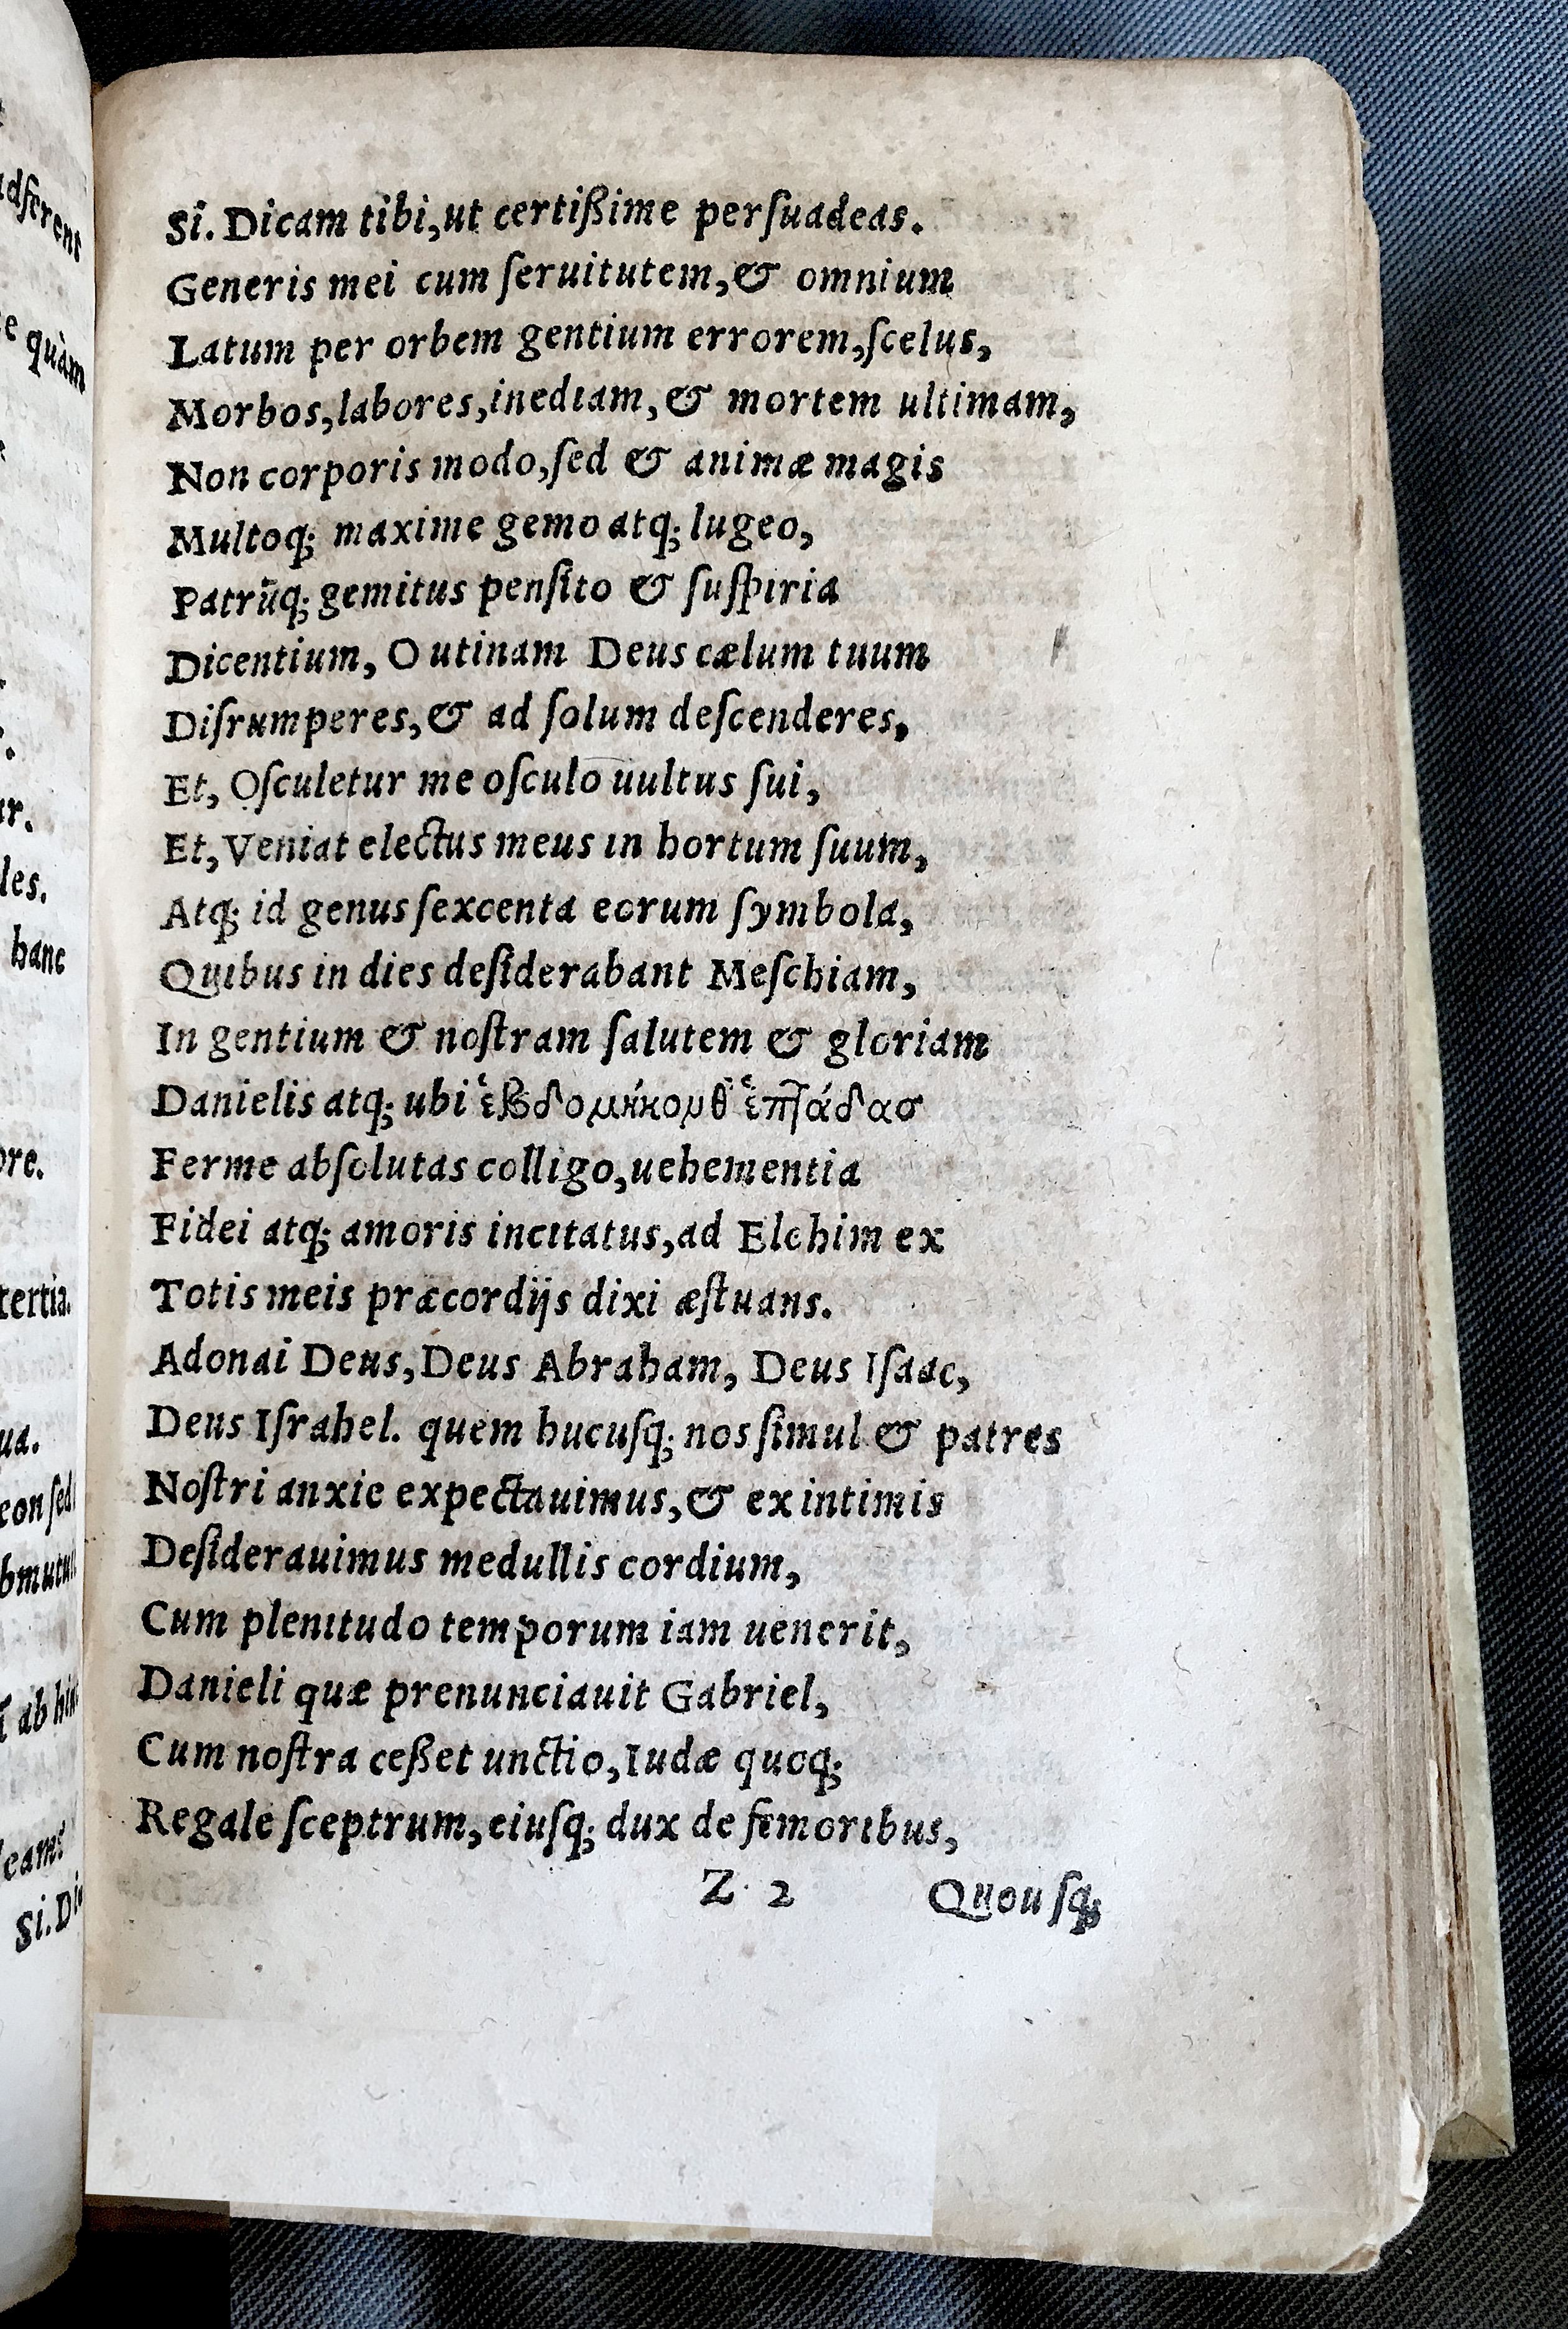 adſerent
quàm
ur.
les.
hanc
ore.
tertia.
ua.
ab
Si. Dicam tibi, ut certißime perſuadeas.
Generis mei cum ſeruitutem, & omnium
Latum per orbem gentium errorem, ſcelus,
Morbos, labores, inediam, & mortem ultimam,
Non corporis modo, ſed & animæ magis
Multoq; maxime gemo atq; lugeo,
Patrūq; gemitus penſito & ſuſpiria
Dicentium, O utinam Deus cælum tuum
Diſrumperes, & ad ſolum deſcenderes,
Et, Oſculetur me oſculo uultus ſui,
Et, Veniat electus meus in hortum ſuum,
Atq; id genus ſexcenta eorum ſymbola,
Quibus in dies deſiderabant Meſchiam,
In gentium & noſtram ſalutem & gloriam
Danielis atq; ubi ἑβδομήκονθ ἑπτάδασ
Ferme abſolutas colligo, uehementia
Fidei atq; amoris incitatus, ad Elohim ex
Totis meis præcordijs dixi æſtuans.
Adonai Deus, Deus Abraham, Deus Iſaac,
Deus Iſrahel. quem hucuſq; nos ſimul & patres
Noſtri anxie expectauimus, & ex intimis
Deſiderauimus medullis cordium,
Cum plenitudo temporum iam uenerit,
Danieli quæ prenunciauit Gabriel,
Cum noſtra ceßet unctio, Iudæ quoq;
Regale ſceptrum, eiuſq; dux de femoribus,
Z 2 Quouſq;